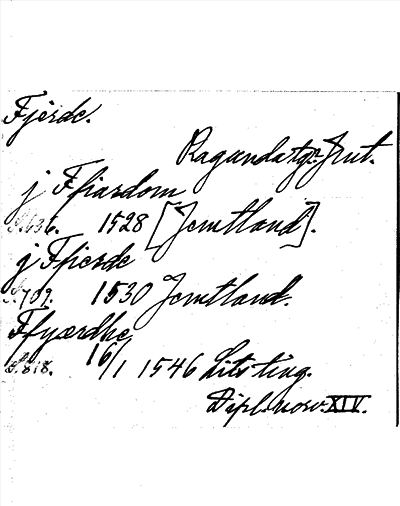 Fjerde.
Ragunda tg. Jmt.
j Ffiardom
S. 636. 1528 [Jemtland].
j Ffierde
S. 709. 1530 Jemtland.
Ffyærdhe
S. 818. 16/1 1546 Lits ting.
Dipl. norv. XIV.